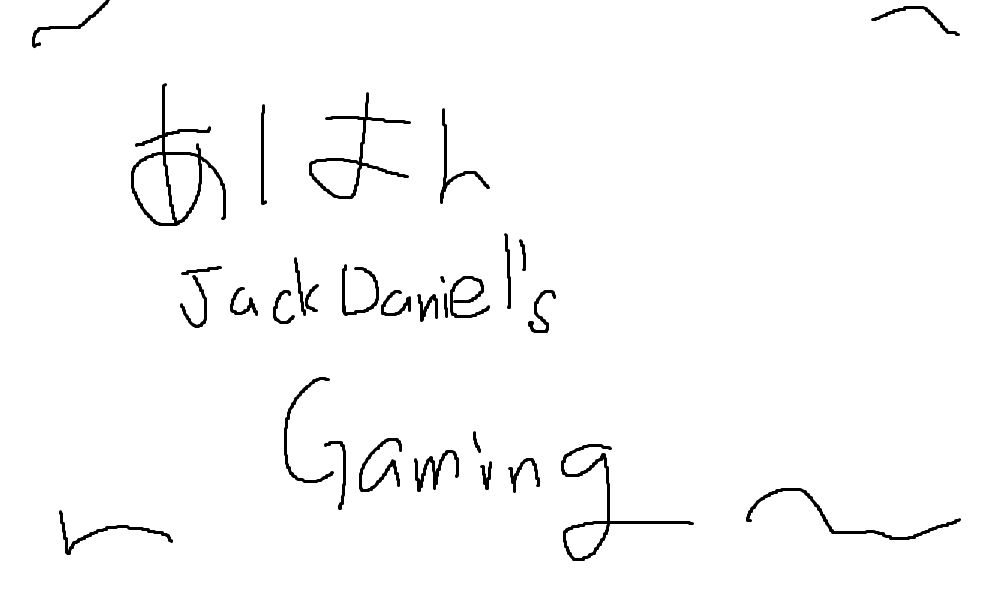 あ|まん
Jack Daniel's
Gaming